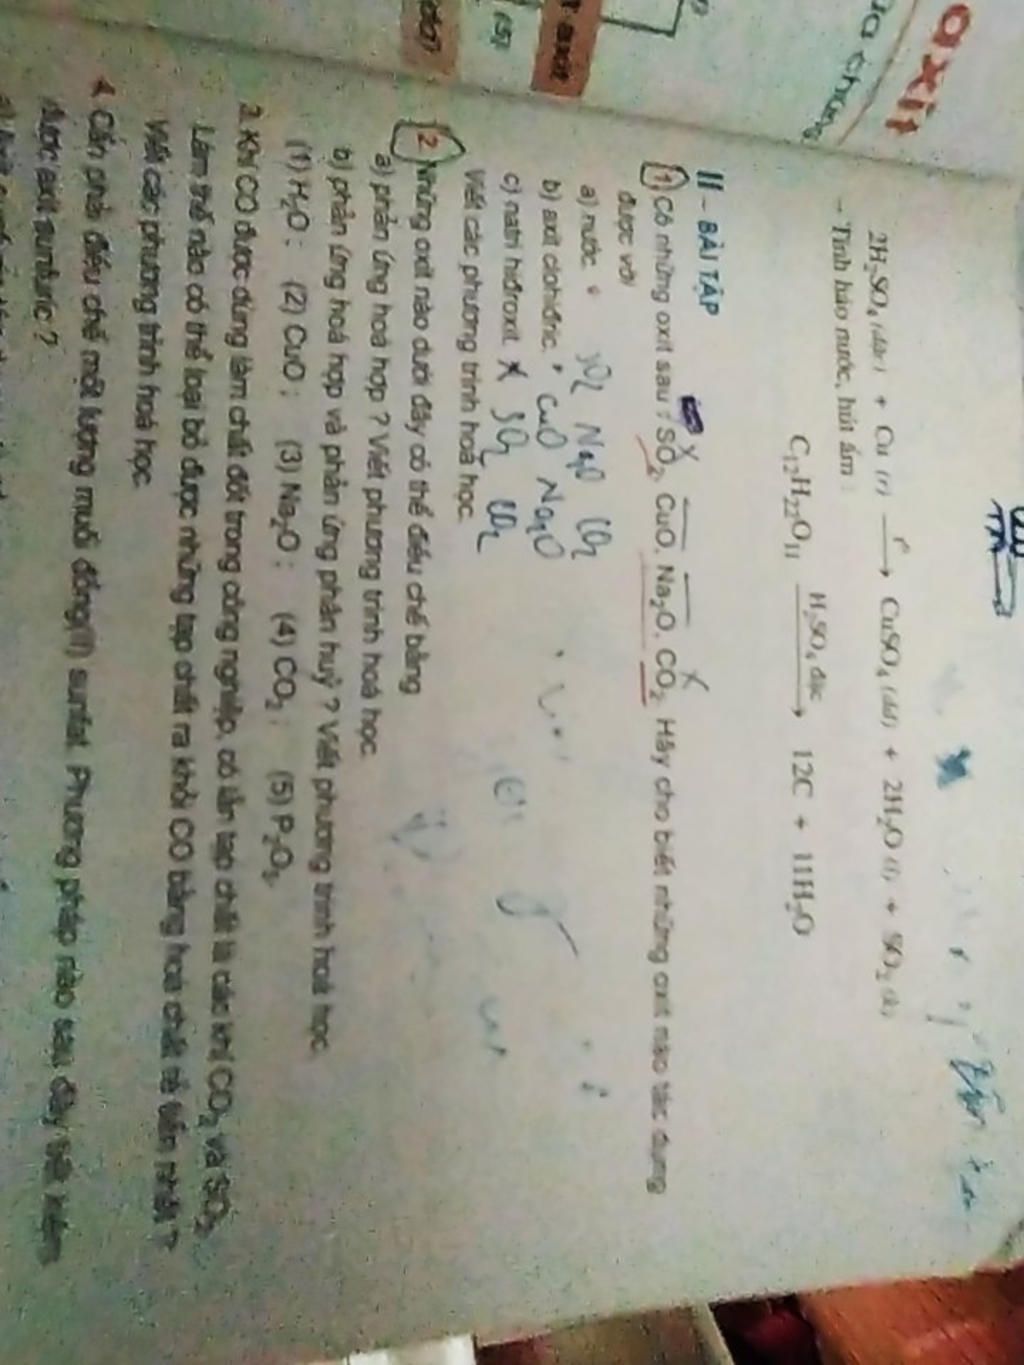 axit
2H₂SO₄ (đặc) + Cu (r) —t°→ CuSO₄ (dd) + 2H₂O (l) + SO₂ (k)
- Tính háo nước, hút ẩm :
C₁₂H₂₂O₁₁ —H₂SO₄ đặc→ 12C + 11H₂O
II - BÀI TẬP
1. Có những oxit sau : SO₂, CuO, Na₂O, CO₂. Hãy cho biết những oxit nào tác dụng
được với
a) nước.
SO₂ Na₂O CO₂
b) axit clohiđric.
CuO Na₂O
c) natri hiđroxit.
SO₂ CO₂
Viết các phương trình hoá học.
2. Những oxit nào dưới đây có thể điều chế bằng
a) phản ứng hoá hợp ? Viết phương trình hoá học.
b) phản ứng hoá hợp và phản ứng phân huỷ ? Viết phương trình hoá học.
(1) H₂O ; (2) CuO ; (3) Na₂O ; (4) CO₂ ; (5) P₂O₅.
3. Khí CO được dùng làm chất đốt trong công nghiệp, có lẫn tạp chất là các khí CO₂ và SO₂.
Làm thế nào có thể loại bỏ được những tạp chất ra khỏi CO bằng hoá chất rẻ tiền nhất ?
Viết các phương trình hoá học.
4. Cần phải điều chế một lượng muối đồng(II) sunfat. Phương pháp nào sau đây tiết kiệm
được axit sunfuric ?
(5)